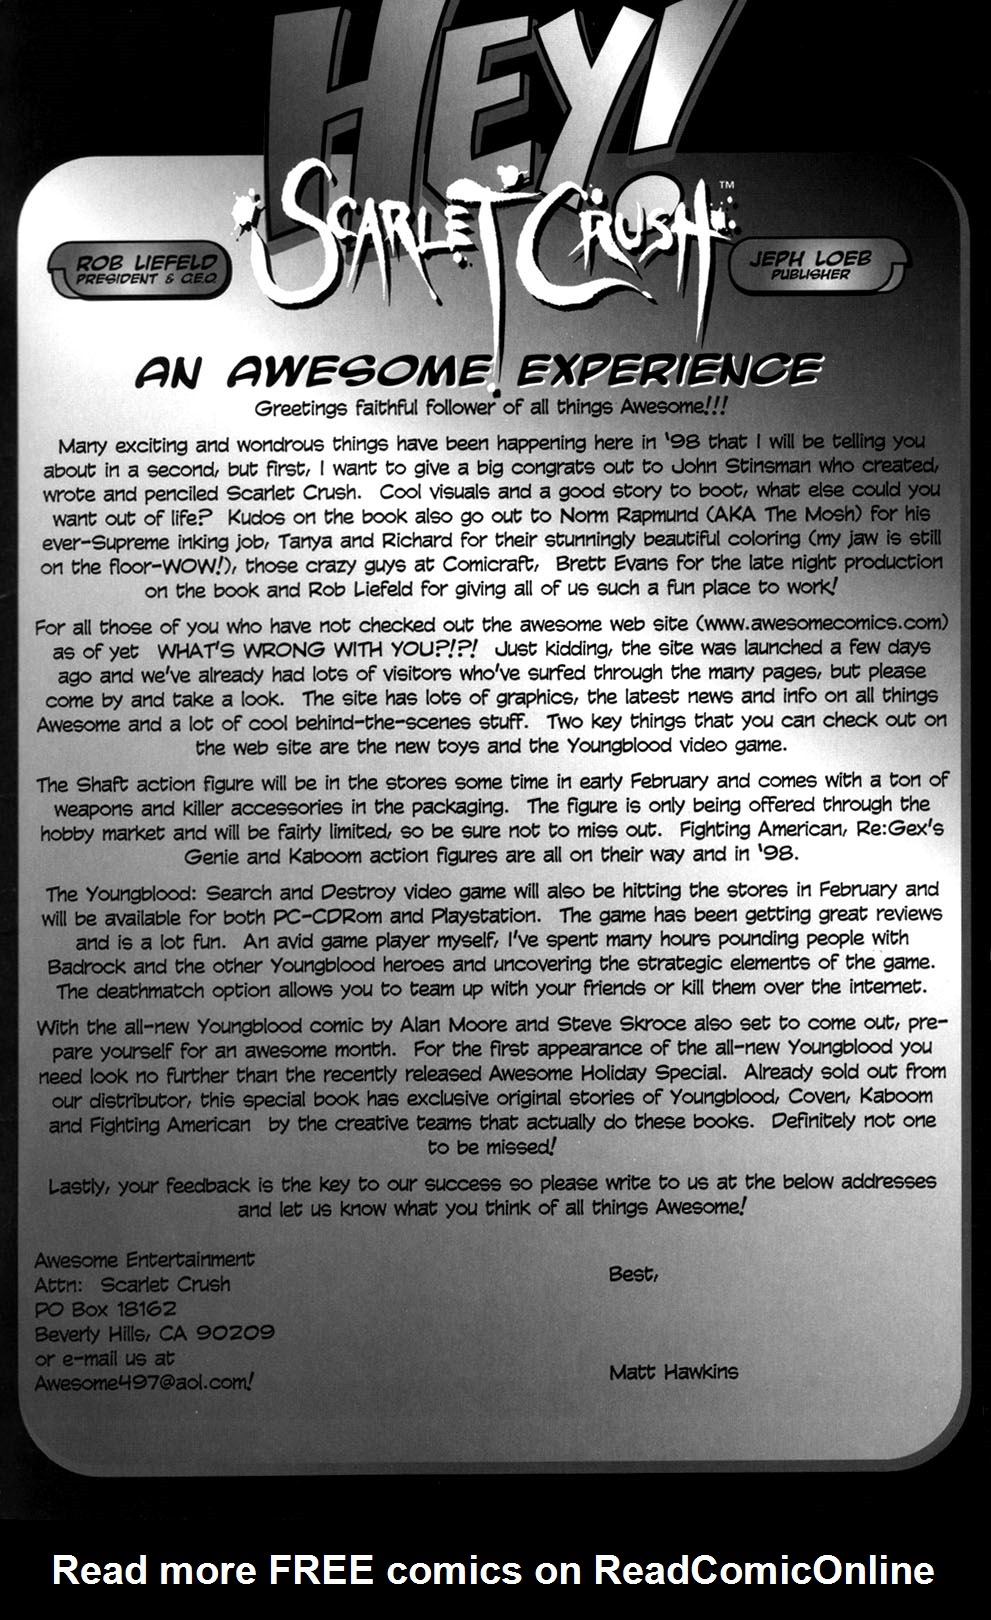 HEY!
SCARLET CRUSH™
ROB LIEFELD
PRESIDENT & C.E.O.
JEPH LOEB
PUBLISHER
AN AWESOME EXPERIENCE
Greetings faithful follower of all things Awesome!!!
Many exciting and wondrous things have been happening here in '98 that I will be telling you
about in a second, but first, I want to give a big congrats out to John Stinsman who created,
wrote and penciled Scarlet Crush. Cool visuals and a good story to boot, what else could you
want out of life? Kudos on the book also go out to Norm Rapmund (AKA The Mosh) for his
ever-Supreme inking job, Tanya and Richard for their stunningly beautiful coloring (my jaw is still
on the floor-WOW!), those crazy guys at Comicraft, Brett Evans for the late night production
on the book and Rob Liefeld for giving all of us such a fun place to work!
For all those of you who have not checked out the awesome web site (www.awesomecomics.com)
as of yet WHAT'S WRONG WITH YOU?!?! Just kidding, the site was launched a few days
ago and we've already had lots of visitors who've surfed through the many pages, but please
come by and take a look. The site has lots of graphics, the latest news and info on all things
Awesome and a lot of cool behind-the-scenes stuff. Two key things that you can check out on
the web site are the new toys and the Youngblood video game.
The Shaft action figure will be in the stores some time in early February and comes with a ton of
weapons and killer accessories in the packaging. The figure is only being offered through the
hobby market and will be fairly limited, so be sure not to miss out. Fighting American, Re:Gex's
Genie and Kaboom action figures are all on their way and in '98.
The Youngblood: Search and Destroy video game will also be hitting the stores in February and
will be available for both PC-CDRom and Playstation. The game has been getting great reviews
and is a lot fun. An avid game player myself, I've spent many hours pounding people with
Badrock and the other Youngblood heroes and uncovering the strategic elements of the game.
The deathmatch option allows you to team up with your friends or kill them over the internet.
With the all-new Youngblood comic by Alan Moore and Steve Skroce also set to come out, pre-
pare yourself for an awesome month. For the first appearance of the all-new Youngblood you
need look no further than the recently released Awesome Holiday Special. Already sold out from
our distributor, this special book has exclusive original stories of Youngblood, Coven, Kaboom
and Fighting American by the creative teams that actually do these books. Definitely not one
to be missed!
Lastly, your feedback is the key to our success so please write to us at the below addresses
and let us know what you think of all things Awesome!
Awesome Entertainment
Attn: Scarlet Crush
PO Box 18162
Beverly Hills, CA 90209
or e-mail us at
Awesome497@aol.com!
Best,
Matt Hawkins
Read more FREE comics on ReadComicOnline